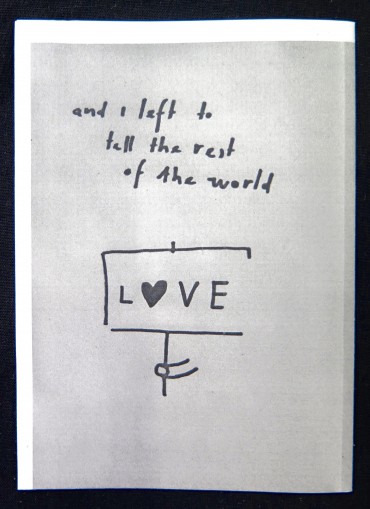 and i left to
tell the rest
of the world
L♥VE